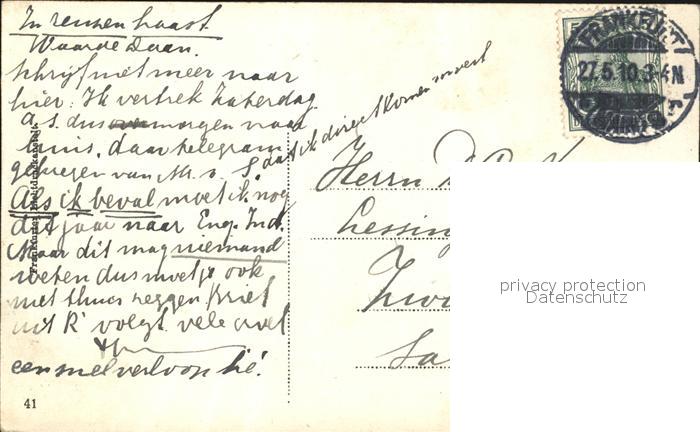 In reuzen haast.
Waarde Daan.
Schrijf niet meer naar
hier. Ik vertrek Zaterdag
a. s. dus morgen naar
huis, daar telegram
gekregen van M. v. S. dat ik direct komen moest
Als ik beval moet ik nog
dit jaar naar Eng. Ind.
Maar dit mag niemand
weten dus moet je ook
niet thuis zeggen Brief
uit R' volgt. vele groet
een snel verloop hé!
41
Herrn
Lessing
Zw
Sa
FRANKFURT
27.5.10.3-4N
(MAIN) 9
privacy protection
Datenschutz